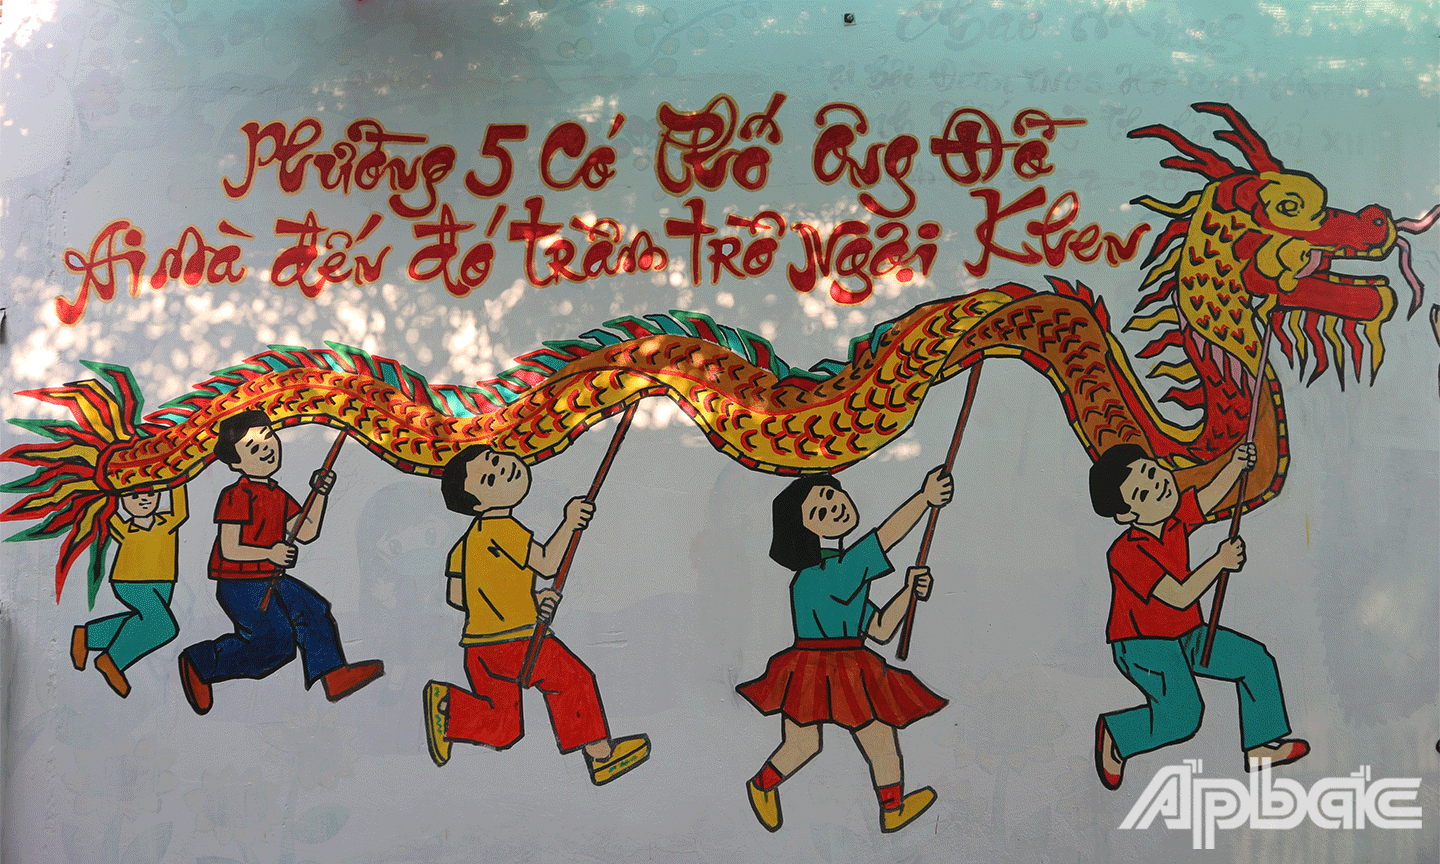 Phường 5 Có Phố Ông Đồ
Ai Mà đến đó trầm trồ Ngợi Khen
Ấpbắc